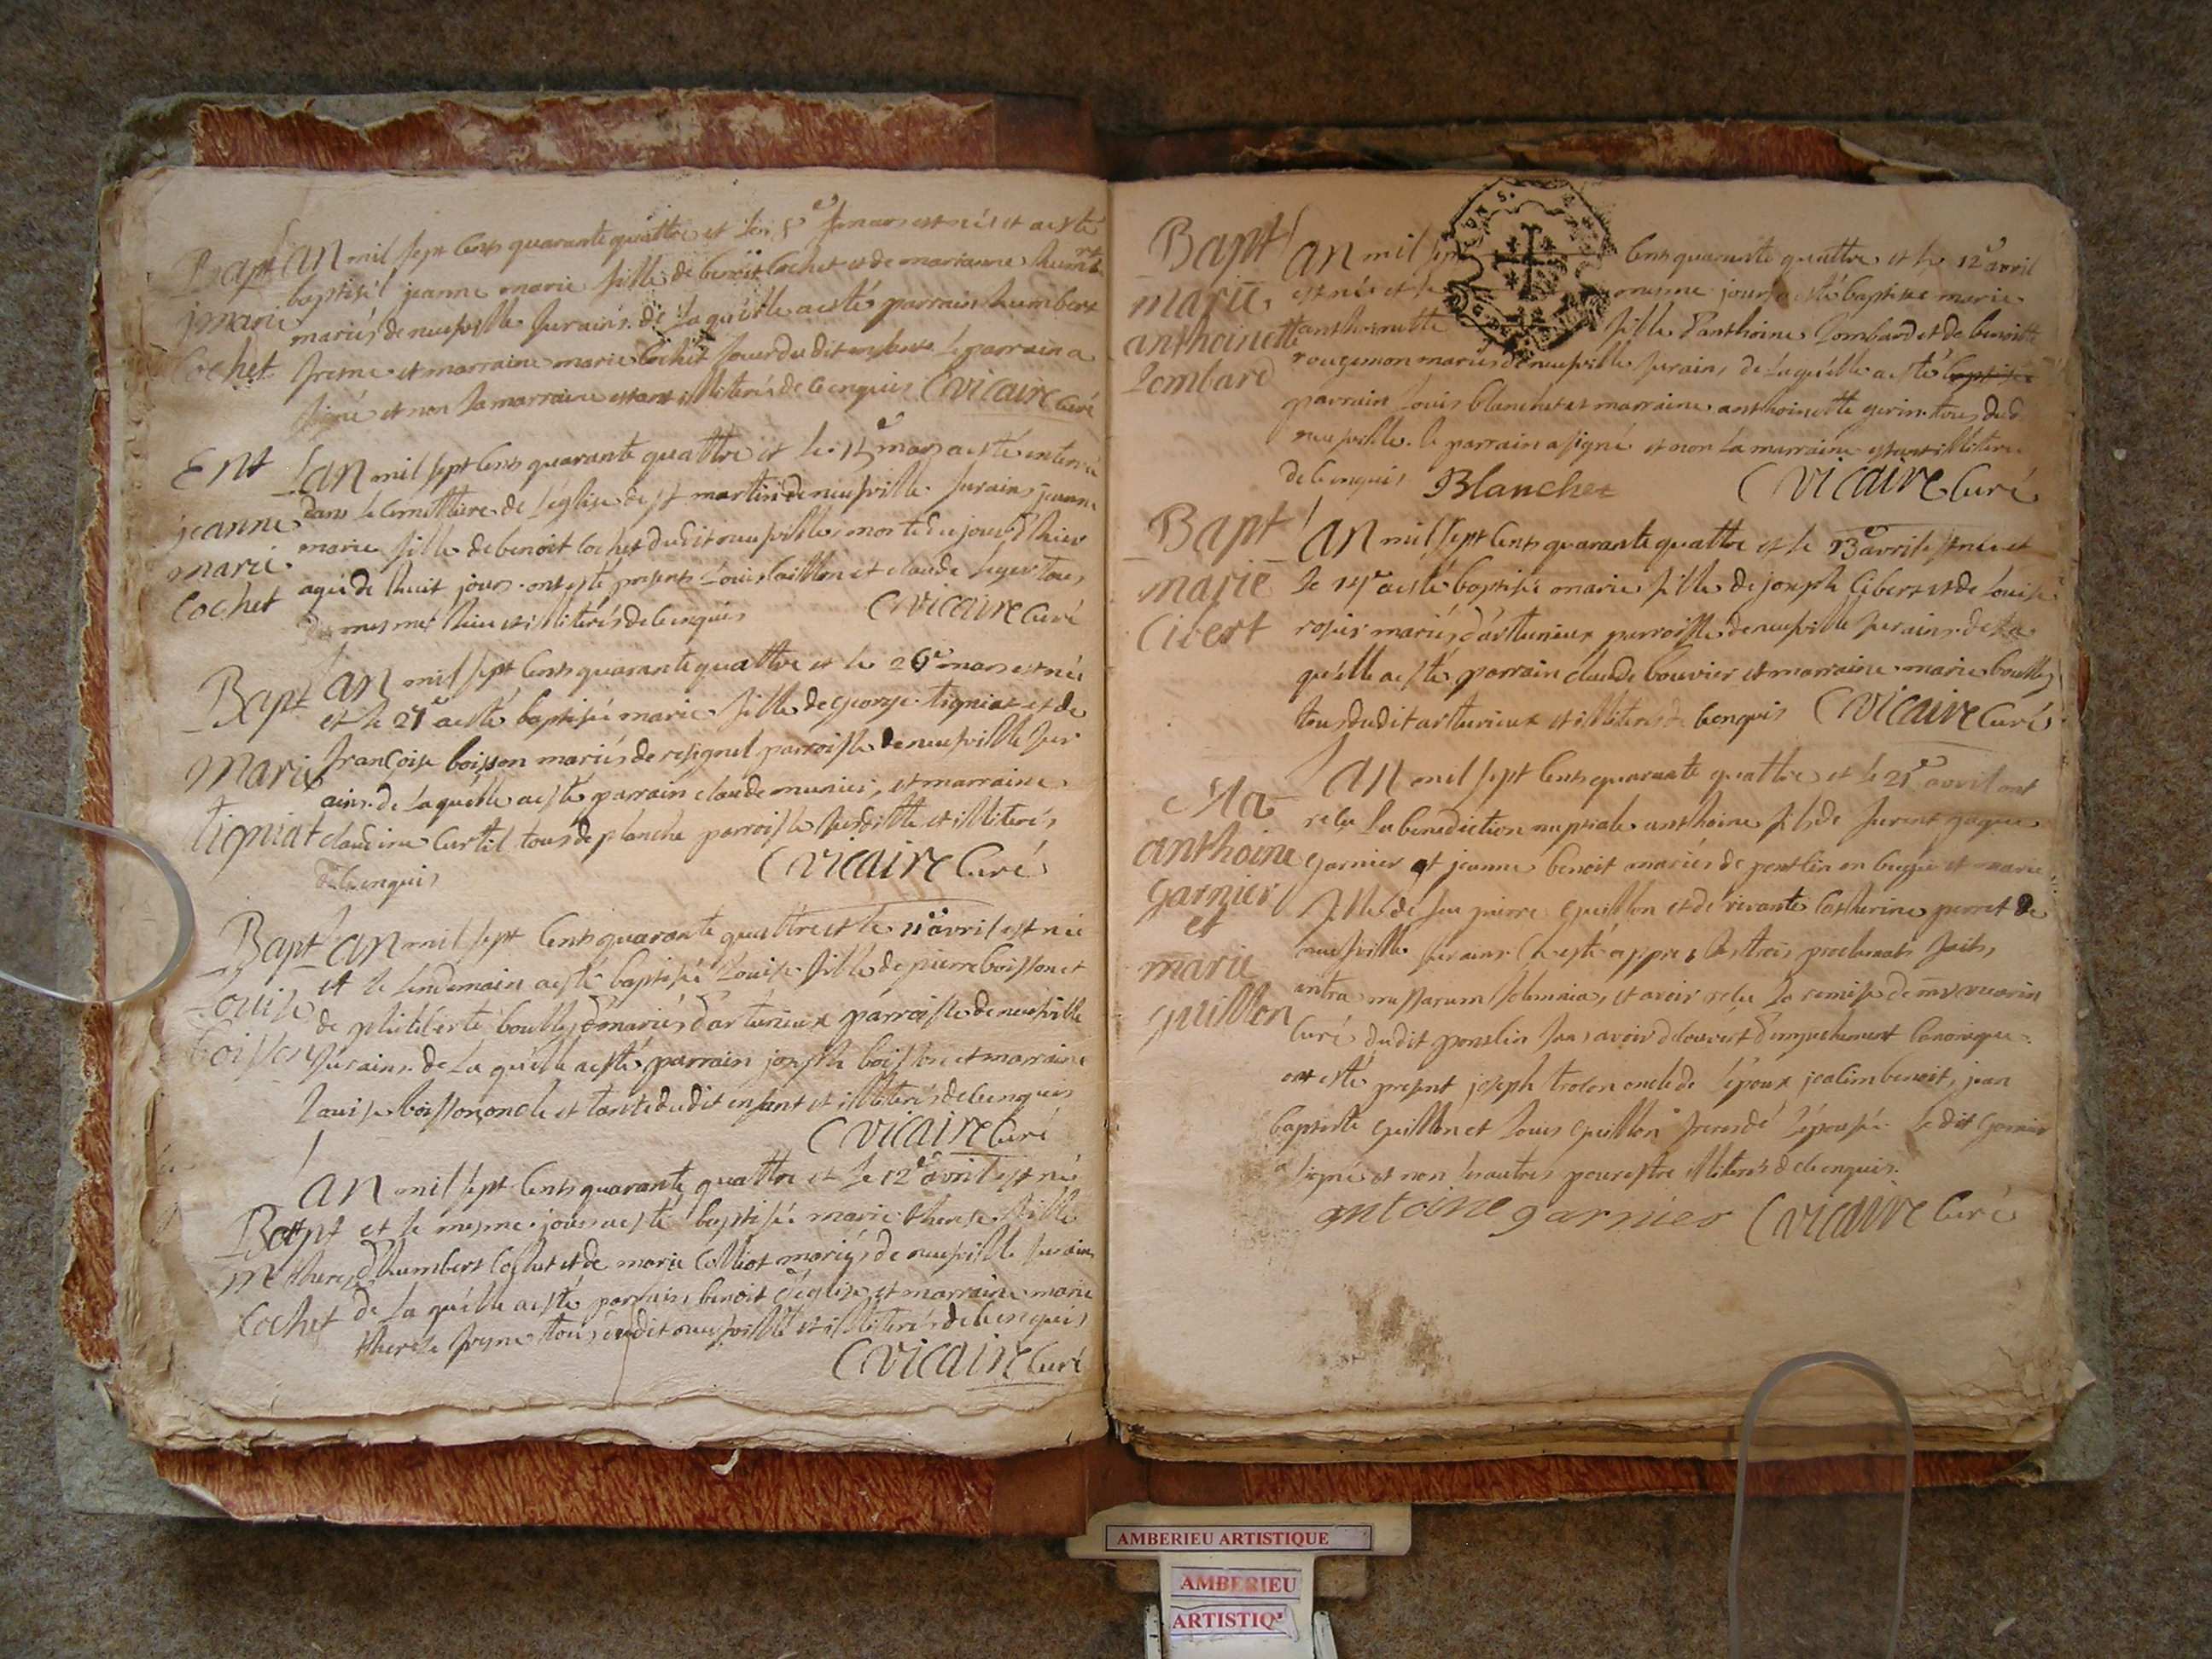 Bapt
jmarie
Cochet
L'an mil sept cents quarante quattre et le 5e mars est née et a esté
baptisée jeanne marie fille de benoit Cochet et de marianne humbt
mariés de neufville sur ains de la quelle a esté parrain humbert
et marraine marie Cochet sœur dudit enfant le parrain a
signé et non la marraine estant illiterés de ce enquis Cvicaire Curé
Ent
jeanne
marie
Cochet
L'an mil sept cents quarante quattre et le 13e mars a esté enterrée
dans le cimettiere de l'église de st martin de neufville sur ains jeanne
marie fille de benoit Cochet dudit neufville morte du jour d'hier
agée de huit jours ont esté presents Louis Caillon et claude Leger tous
du mesme lieu et illiterés de ce enquis Cvicaire Curé
Bapt
Marie
tigniat
L'an mil sept cents quarante quattre et le 26e mars est née
et le 27e a esté baptisée marie fille de george tigniat et de
françoise boisson mariés de resignel parroisse de neufville sur
ains de la quelle a esté parrain claude et marraine
claudine Curtil tous de planche parroisse susditte et illiterés
de ce enquis Cvicaire Curé
Bapt
Louise
boisson
L'an mil sept cents quarante quattre et le 11e avril est née
et le lendemain a esté baptisée Louise fille de pierre boisson et
de philiberte boulley mariés d'arturieux parroisse de neufville
sur ains de la quelle a esté parrain joseph boisson et marraine
Louise boisson oncle et tante dudit enfant et illiterés de ce enquis
Cvicaire Curé
Bapt
M therese
Cochet
L'an mil sept cents quarante quattre et le 12e avril est née
et le mesme jour a esté baptisée marie therese fille
d'humbert Cochet et de marie Colliot mariés de neufville sur ains
de la quelle a esté parrain benoit et marraine marie
therese tous dudit neufville et illiterés de ce enquis
Cvicaire Curé
Bapt
marie
anthoinette
Lombard
L'an mil sept cents quarante quattre et le 12e avril
est née et le mesme jour a esté baptisée marie
anthoinette fille d'anthoine Lombard et de benoitte
rougemon mariés de neufville sur ains de la quelle a esté baptisée
parrain Louis blanchet et marraine anthoinette gerin tous dud
neufville le parrain a signé et non la marraine estant illiterée
de ce enquis Blanchet Cvicaire Curé
Bapt
marie
Cibert
L'an mil sept cents quarante quattre et le 13e avril est née et
le 14e a esté baptisée marie fille de joseph Cibert et de Louise
rosier mariés d'arturieux parroisse de neufville sur ains de la
quelle a esté parrain claude bouvier et marraine marie boulley
tous dudit arturieux et illiterés de ce enquis Cvicaire Curé
Ma
anthoine
garnier
et
marie
guillon
L'an mil sept cents quarante quattre et le 21e avril ont
recu la benediction nuptiale anthoine fils de
garnier et jeanne benoit mariés de en bugei et marie
fille de feu pierre guillon et de vivante Catherine perret de
neufville sur ains Ce esté appres les trois proclamats faits
intra missarum solemnia, et avoir recu la remise de mr
Curé dudit sans avoir decouvert d'empechement canonique
ont esté present joseph trolon oncle de l'epoux benoit, jean
baptiste guillon et Louis guillon freres de l'epousée ledit garnier
a signé et non les autres pour estre illiterés de ce enquis
antoine garnier Cvicaire Curé
AMBERIEU ARTISTIQUE
AMBERIEU
ARTISTIQ